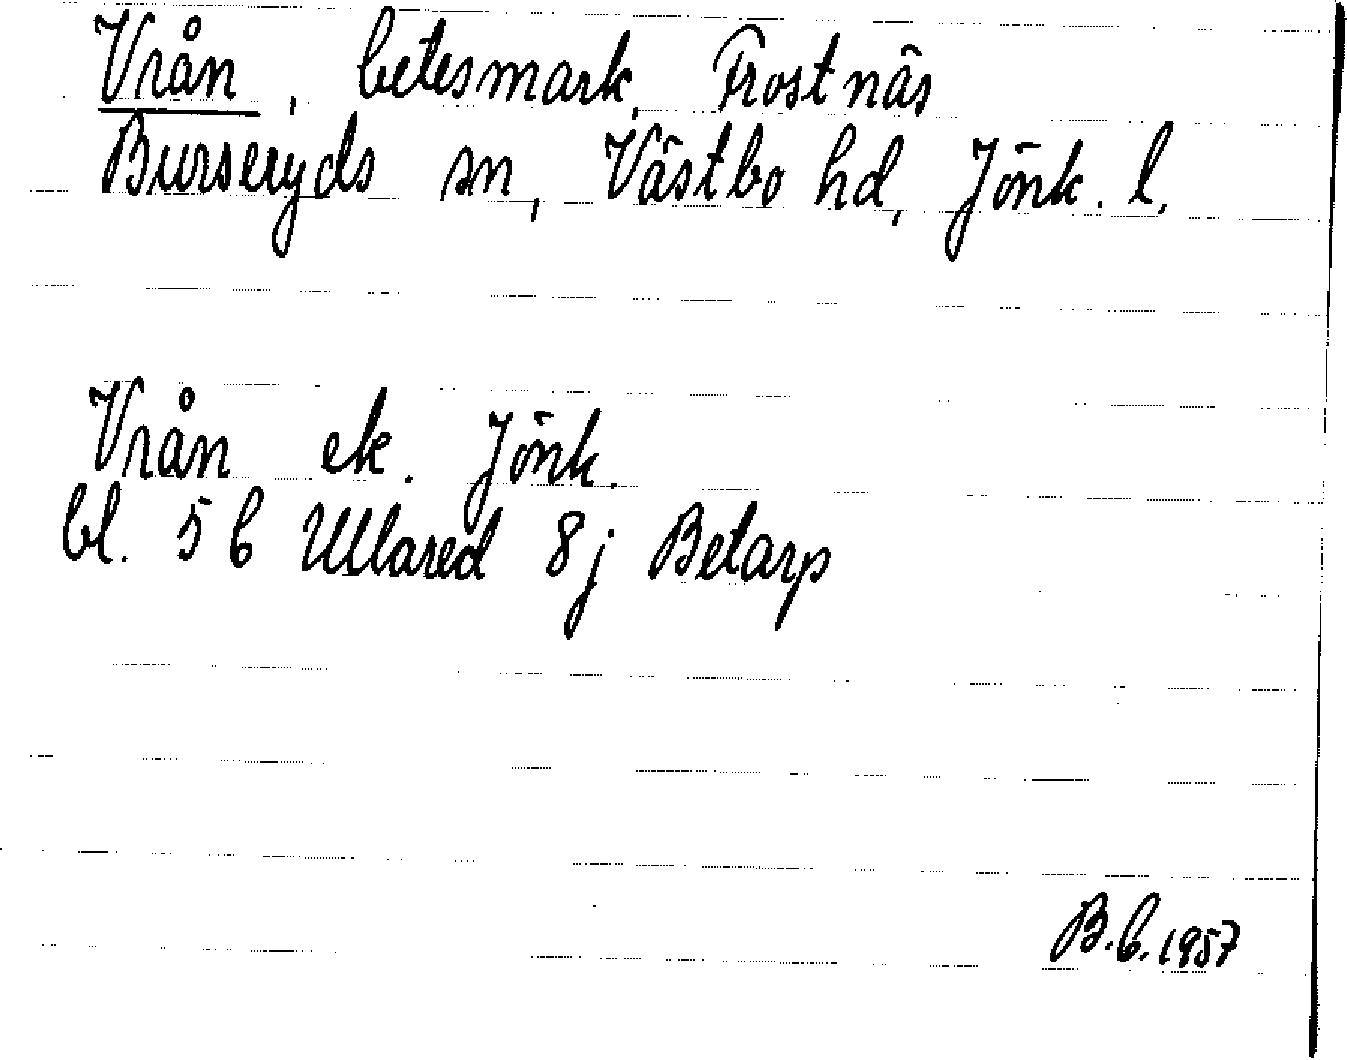 Vrån, betesmark, Frostnäs
Burseryds sn, Västbo hd, Jönk. l.
Vrån ek. Jönk.
bl. 5 b Ullared 8j Betarp
B.b. 1957